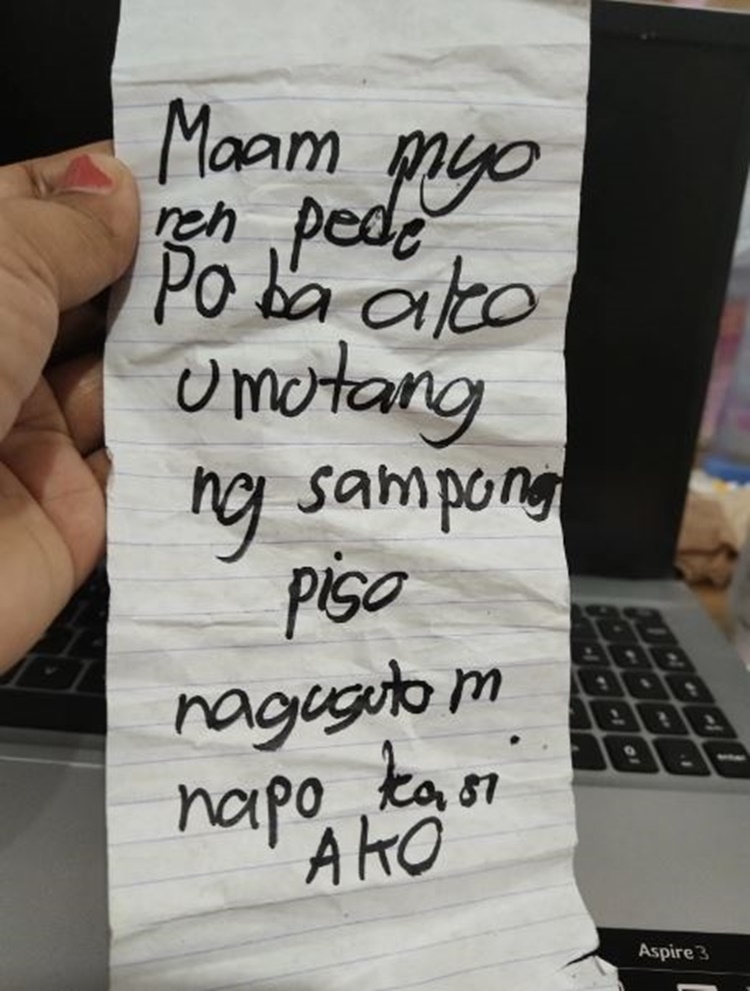 Maam myo
ren pede
Po ba ako
umutang
ng sampung
piso
nagugutom
napo kasi
AKO
Aspire 3